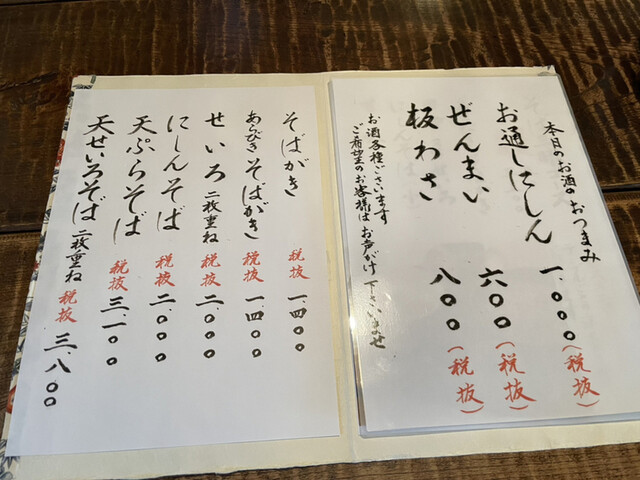 本日のお酒のおつまみ
お通しにしん 一、〇〇〇(税抜)
ぜんまい 六〇〇(税抜)
板わさ 八〇〇(税抜)
お酒各種ございます
ご希望のお客様はお声がけ下さいませ
そばがき 税抜 一、四〇〇
あらびきそばがき 税抜 一、四〇〇
せいろ 二枚重ね 税抜 二、〇〇〇
にしんそば 税抜 二、〇〇〇
天ぷらそば 税抜 三、一〇〇
天せいろそば 二枚重ね 税抜 三、八〇〇